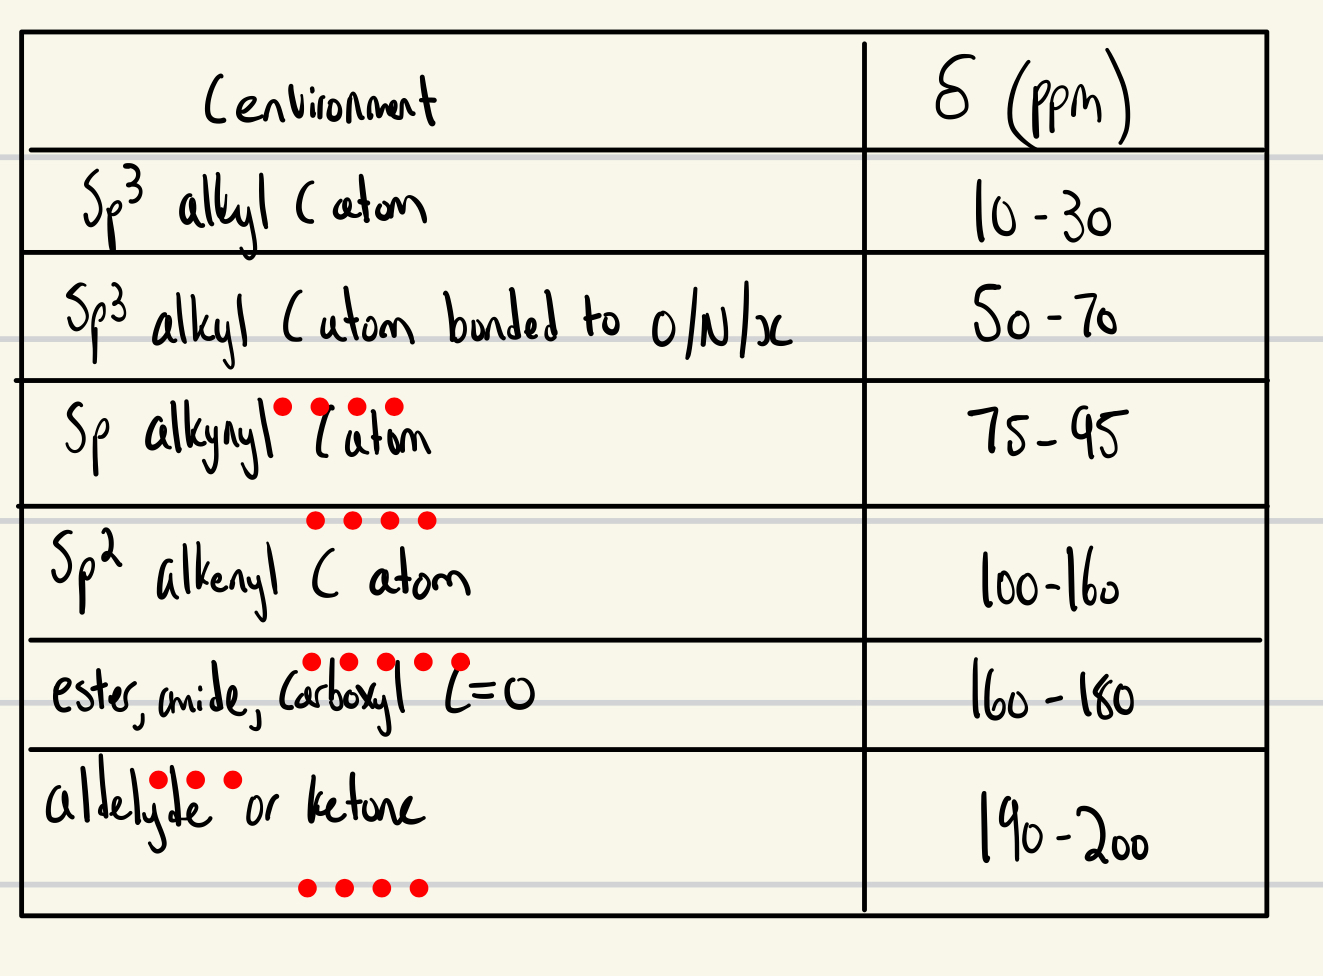 C environment δ (ppm)
Sp³ alkyl C atom 10-30
Sp³ alkyl C atom bonded to O/N/x 50-70
Sp alkynyl C atom 75-95
Sp² alkenyl C atom 100-160
ester, amide, Carboxyl C=O 160-180
aldelyde or ketone 190-200